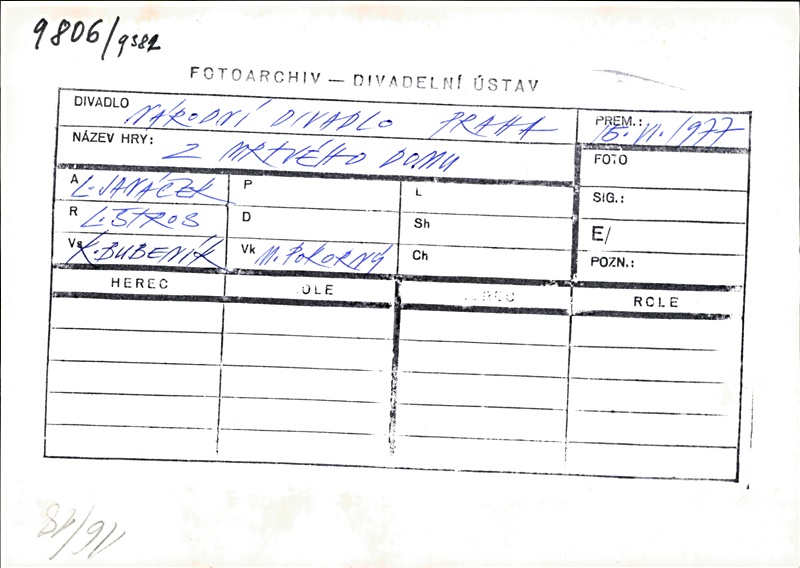 9806/9382
FOTOARCHIV — DIVADELNÍ ÚSTAV
DIVADLO NÁRODNÍ DIVADLO PRAHA
PREM.: 15. VI. 1977
NÁZEV HRY: Z MRTVÉHO DOMU
FOTO
A L. JANÁČEK P L
SIG.:
R L. ŠTROS D Sh
E/
Vs K. BUBENÍK Vk M. POKORNÝ Ch
POZN.:
HEREC OLE REC ROLE
16/18